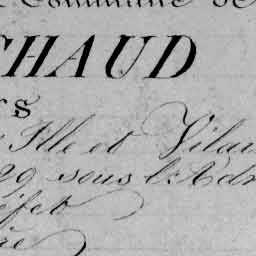 Commune de
CHAUD
rs
Ille et Vilai
29 sous l'Adm
éfet
ire